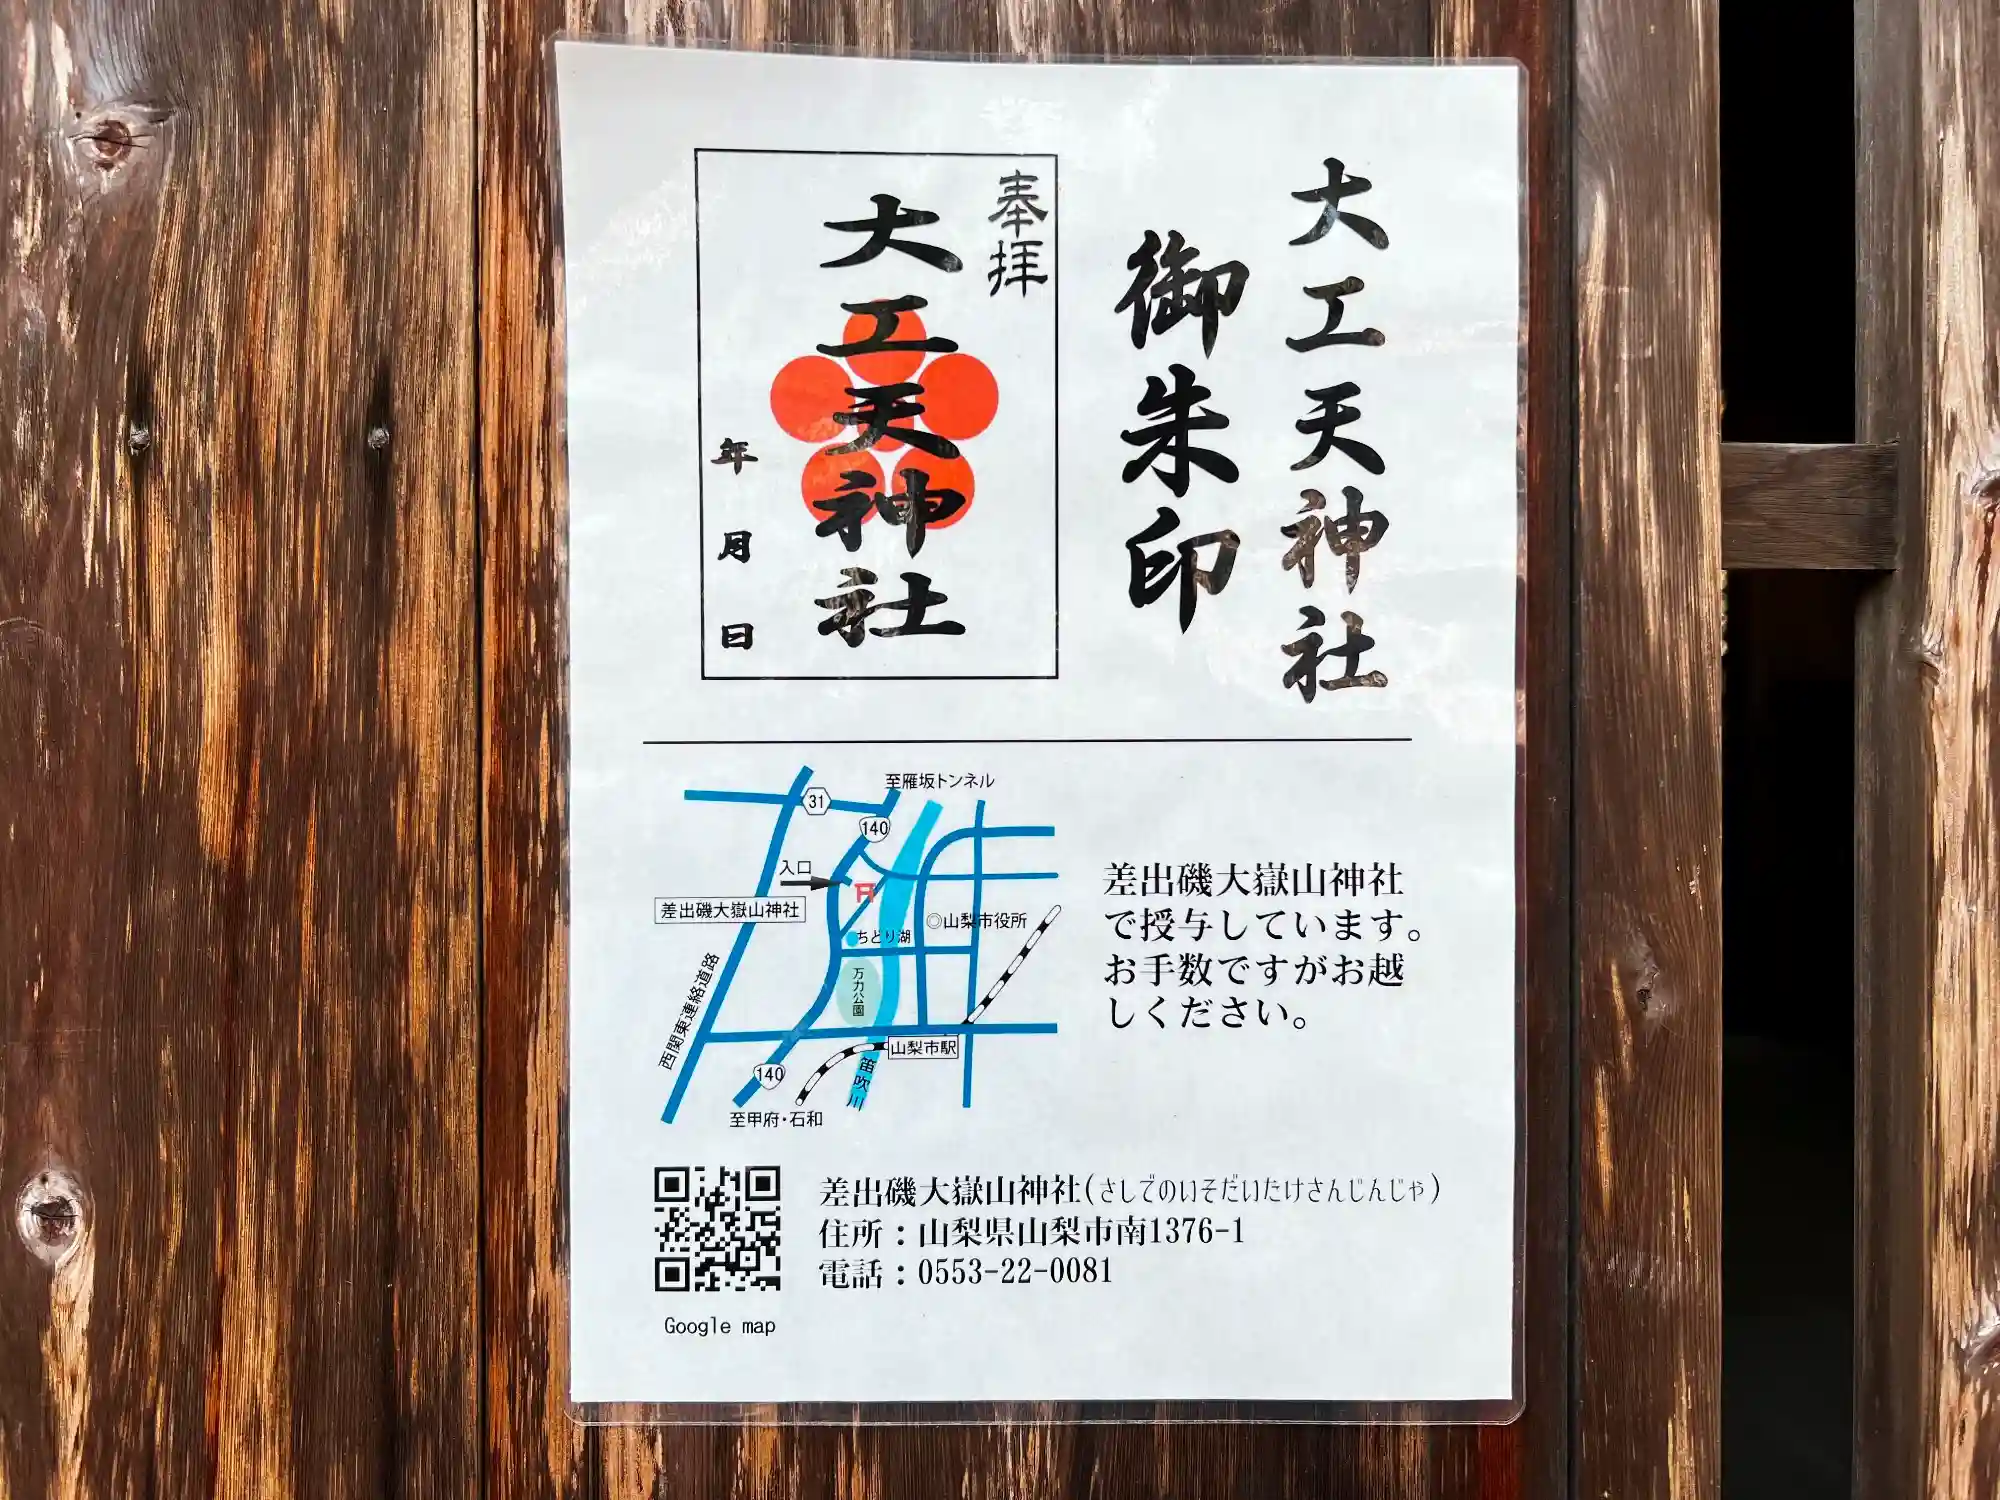 大工天神社
御朱印
奉拝
大工天神社
年 月 日
至雁坂トンネル
31
140
入口
差出磯大嶽山神社
◎山梨市役所
ちどり湖
万力公園
西関東連絡道路
山梨市駅
140
笛吹川
至甲府・石和
差出磯大嶽山神社
で授与しています。
お手数ですがお越
しください。
差出磯大嶽山神社(さしでのいそだいたけさんじんじゃ)
住所：山梨県山梨市南1376-1
電話：0553-22-0081
Google map